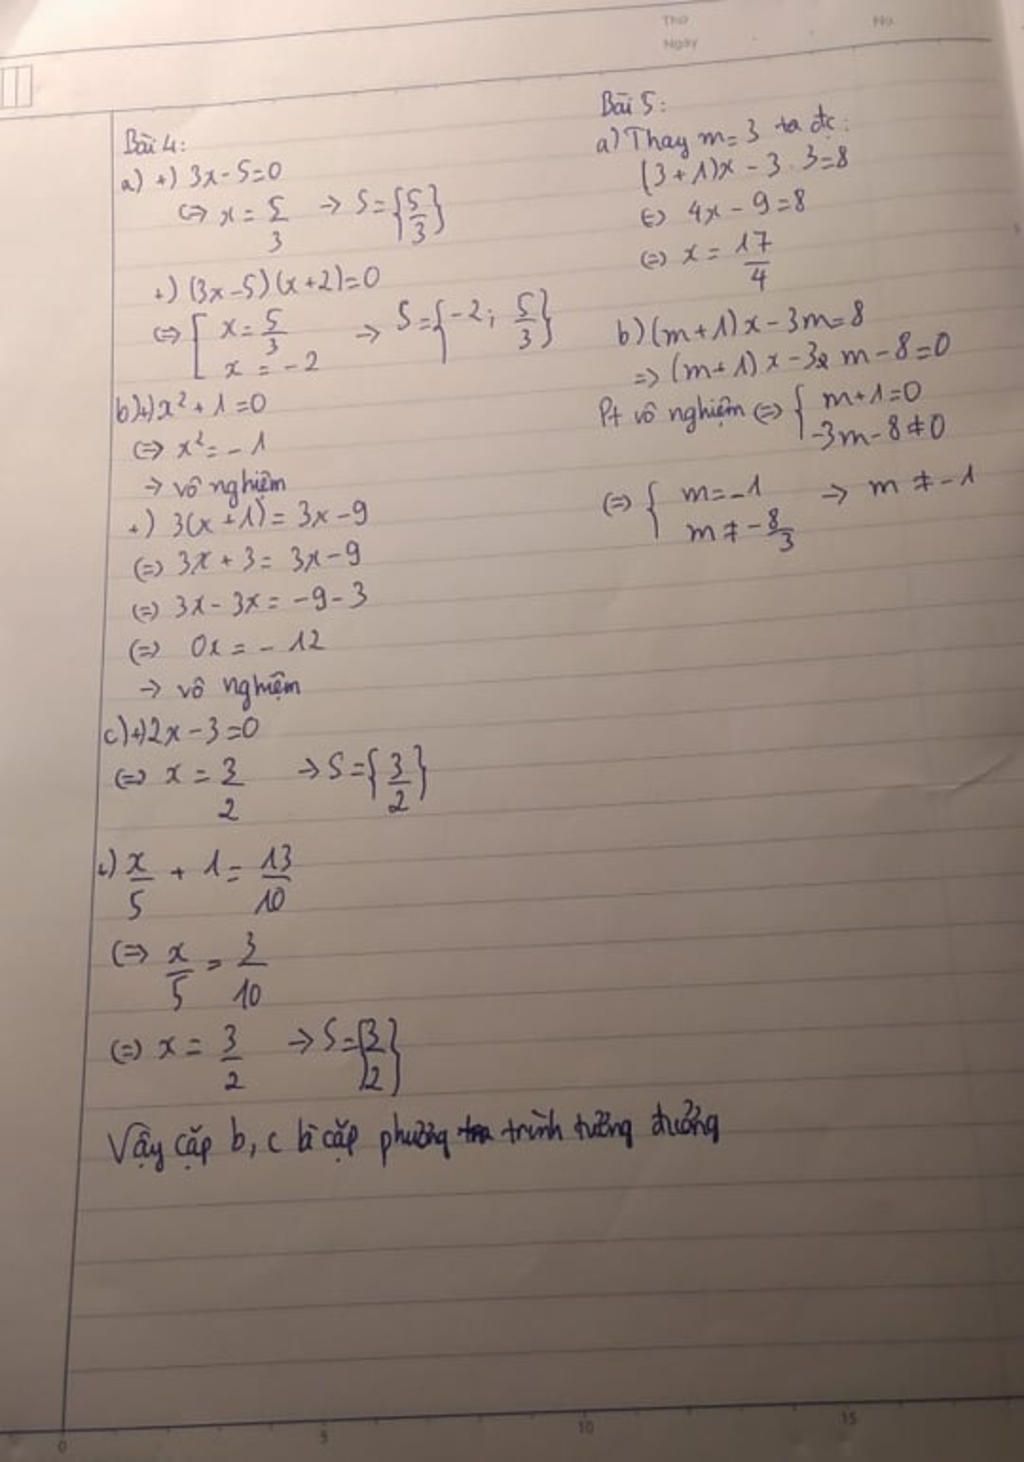 Thứ
Ngày
No.
Bài 4:
a) +) 3x - 5 = 0
<=> x = 5/3 → S = {5/3}
+) (3x - 5)(x + 2) = 0
<=> [ x = 5/3
x = -2 → S = {-2; 5/3}
b) +) x² + 1 = 0
<=> x² = -1
→ vô nghiệm
+) 3(x + 1) = 3x - 9
<=> 3x + 3 = 3x - 9
<=> 3x - 3x = -9 - 3
<=> 0x = -12
→ vô nghiệm
c) +) 2x - 3 = 0
<=> x = 3/2 → S = {3/2}
+) x/5 + 1 = 13/10
<=> x/5 = 3/10
<=> x = 3/2 → S = {3/2}
Vậy cặp b, c là cặp phương trình tương đương
Bài 5:
a) Thay m = 3 ta đc:
(3 + 1)x - 3 . 3 = 8
<=> 4x - 9 = 8
<=> x = 17/4
b) (m + 1)x - 3m = 8
=> (m + 1)x - 3m - 8 = 0
Pt vô nghiệm <=> { m + 1 = 0
-3m - 8 ≠ 0
<=> { m = -1 → m ≠ -1
m ≠ -8/3
0 5 10 15